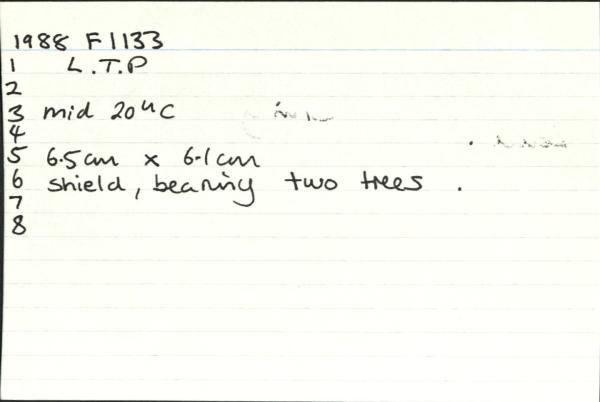 1988 F1133
1 L.T.P
2
3 mid 20th C
4
5 6.5cm x 6.1cm
6 shield, bearing two trees .
7
8